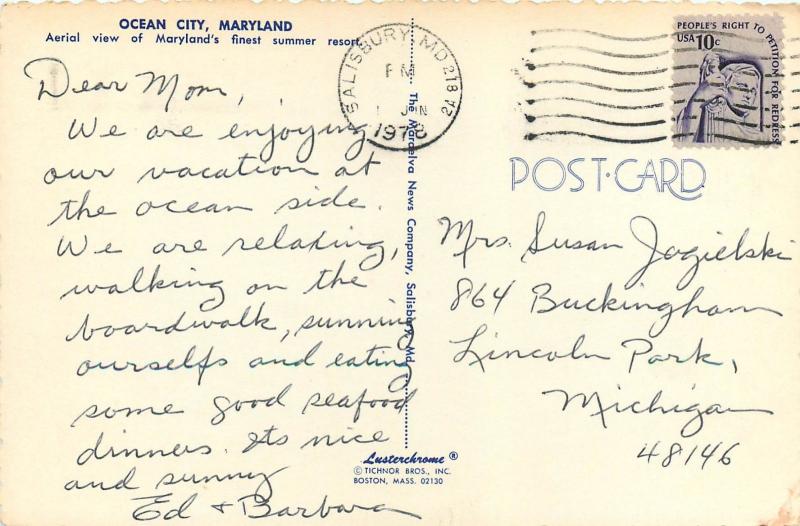 OCEAN CITY, MARYLAND
Aerial view of Maryland's finest summer resort
Dear Mom,
We are enjoying
our vacation at
the ocean side.
We are relaxing,
walking on the
boardwalk, sunning
ourselfs and eating
some good seafood
dinners. Its nice
and sunny
Ed + Barbara
SALISBURY, MD 218
PM
1 JUN
1978
2A
The Mardelva News Company, Salisbury, Md.
Lusterchrome ®
© TICHNOR BROS., INC.
BOSTON, MASS. 02130
PEOPLE'S RIGHT TO PETITION FOR REDRESS
USA 10c
POST-CARD
Mrs. Susan Jogielski
864 Buckingham
Lincoln Park,
Michigan
48146